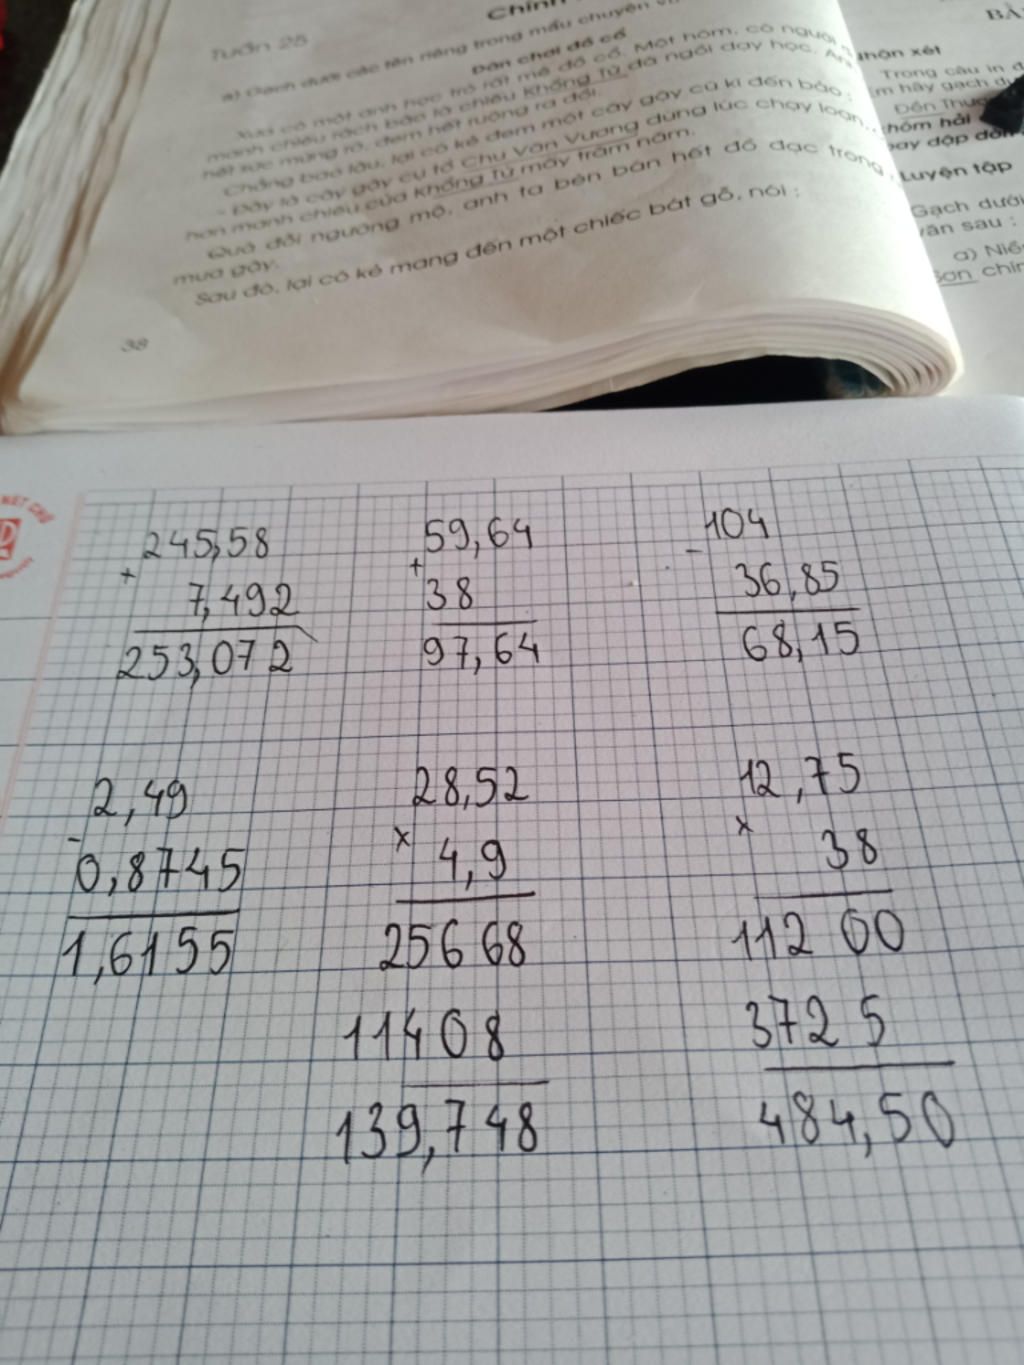 Chính
Tuần 25
a) Gạch dưới các tên riêng trong mẩu chuyện
Dân chơi đồ cổ
Xưa có một anh học trò rất mê đồ cổ. Một hôm, có người
manh chiếu rách bảo là chiếu Khổng Tử đã ngồi dạy học. Anh
hết sức mừng rỡ, đem hết ruộng ra đổi.
Chẳng bao lâu, lại có kẻ đem một cây gậy cũ kĩ đến bảo :
- Đây là cây gậy cụ tổ Chu Văn Vương dùng lúc chạy loạn,
hơn manh chiếu của Khổng Tử mấy trăm năm.
Quá đỗi ngưỡng mộ, anh ta bèn bán hết đồ đạc trong
mua gậy.
Sau đó, lại có kẻ mang đến một chiếc bát gỗ, nói :
38
nhận xét
Trong câu in
m hãy gạch
Đền
hòm hải
bay dập
Luyện tập
Gạch dưới
văn sau :
a)
Sơn
NÉT CHỮ
245,58
+
7,492
253,072
59,64
+
38
97,64
104
-
36,85
68,15
2,49
-
0,8745
1,6155
28,52
x
4,9
25668
11408
139,748
12,75
x
38
11200
3725
484,50